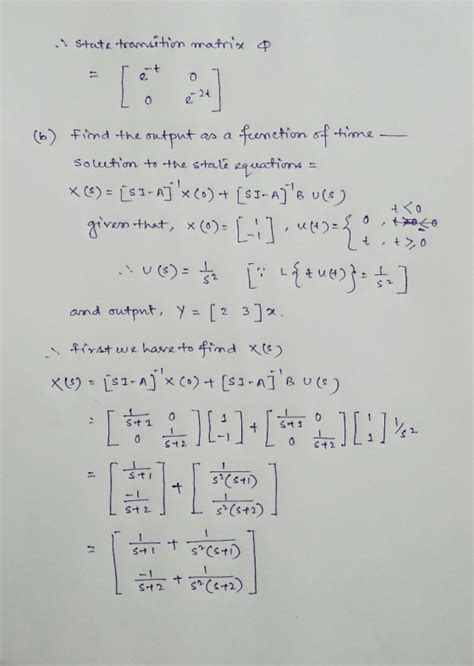 ∴ State transition matrix ϕ
= [ e^-t 0 ; 0 e^-2t ]
(b) Find the output as a function of time —
Solution to the state equations =
X(s) = [SI-A]^-1 X(0) + [SI-A]^-1 B U(s)
given that, X(0) = [ 1 ; -1 ], U(t) = { 0, t<0 ; t, t≥0
∴ U(s) = 1/s^2 [∵ L{t u(t)} = 1/s^2]
and output, Y = [2 3]x.
∴ First we have to find X(s)
X(s) = [SI-A]^-1 X(0) + [SI-A]^-1 B U(s)
= [ 1/(s+1) 0 ; 0 1/(s+2) ] [ 1 ; -1 ] + [ 1/(s+1) 0 ; 0 1/(s+2) ] [ 1 ; 1 ] 1/s^2
= [ 1/(s+1) ; -1/(s+2) ] + [ 1/(s^2(s+1)) ; 1/(s^2(s+2)) ]
= [ 1/(s+1) + 1/(s^2(s+1)) ; -1/(s+2) + 1/(s^2(s+2)) ]